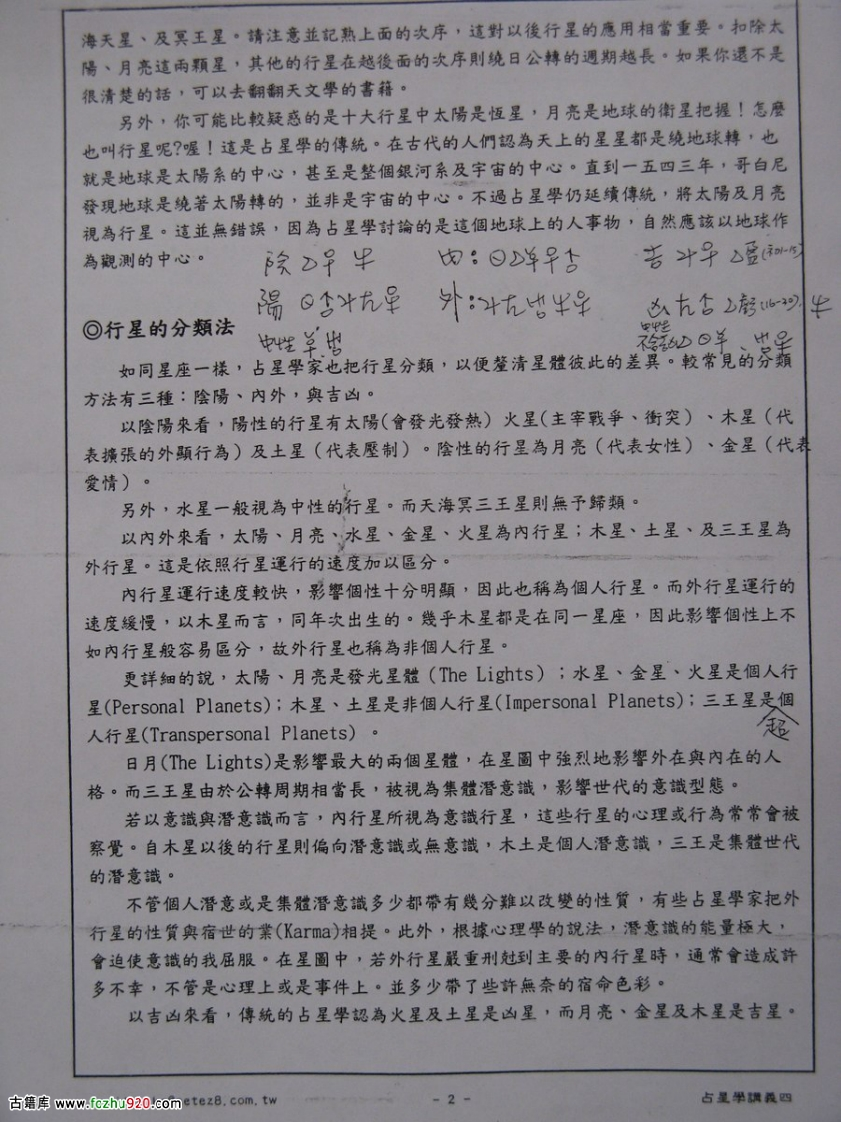 海天星、及冥王星。請注意並記熟上面的次序，這對以後行星的應用相當重要。扣除太
陽、月亮這兩顆星，其他的行星在越後面的次序則繞日公轉的週期越長。如果你還不是
很清楚的話，可以去翻翻天文學的書籍。
另外，你可能比較疑惑的是十大行星中太陽是恆星，月亮是地球的衛星把握！怎麼
也叫行星呢?喔！這是占星學的傳統。在古代的人們認為天上的星星都是繞地球轉，也
就是地球是太陽系的中心，甚至是整個銀河系及宇宙的中心。直到一五四三年，哥白尼
發現地球是繞著太陽轉的，並非是宇宙的中心。不過占星學仍延續傳統，將太陽及月亮
視為行星。這並無錯誤，因為占星學討論的是這個地球上的人事物，自然應該以地球作
為觀測的中心。
陰
內：
吉
陽
外：
凶
中性
中性
◎行星的分類法
如同星座一樣，占星學家也把行星分類，以便釐清星體彼此的差異。較常見的分類
方法有三種：陰陽、內外，與吉凶。
以陰陽來看，陽性的行星有太陽(會發光發熱) 火星(主宰戰爭、衝突) 、木星（代
表擴張的外顯行為）及土星（代表壓制）。陰性的行星為月亮（代表女性）、金星（代表
愛情）。
另外，水星一般視為中性的行星。而天海冥三王星則無予歸類。
以內外來看，太陽、月亮、水星、金星、火星為內行星；木星、土星、及三王星為
外行星。這是依照行星運行的速度加以區分。
內行星運行速度較快，影響個性十分明顯，因此也稱為個人行星。而外行星運行的
速度緩慢，以木星而言，同年次出生的。幾乎木星都是在同一星座，因此影響個性上不
如內行星般容易區分，故外行星也稱為非個人行星。
更詳細的說，太陽、月亮是發光星體（The Lights）；水星、金星、火星是個人行
星(Personal Planets)；木星、土星是非個人行星(Impersonal Planets)；三王星是個
超
人行星(Transpersonal Planets) 。
日月(The Lights)是影響最大的兩個星體，在星圖中強烈地影響外在與內在的人
格。而三王星由於公轉周期相當長，被視為集體潛意識，影響世代的意識型態。
若以意識與潛意識而言，內行星所視為意識行星，這些行星的心理或行為常常會被
察覺。自木星以後的行星則偏向潛意識或無意識，木土是個人潛意識，三王是集體世代
的潛意識。
不管個人潛意或是集體潛意識多少都帶有幾分難以改變的性質，有些占星學家把外
行星的性質與宿世的業(Karma)相提。此外，根據心理學的說法，潛意識的能量極大，
會迫使意識的我屈服。在星圖中，若外行星嚴重刑尅到主要的內行星時，通常會造成許
多不幸，不管是心理上或是事件上。並多少帶了些許無奈的宿命色彩。
以吉凶來看，傳統的占星學認為火星及土星是凶星，而月亮、金星及木星是吉星。
古籍库 www.fczhu920.com
etez8.com.tw
- 2 -
占星學講義四